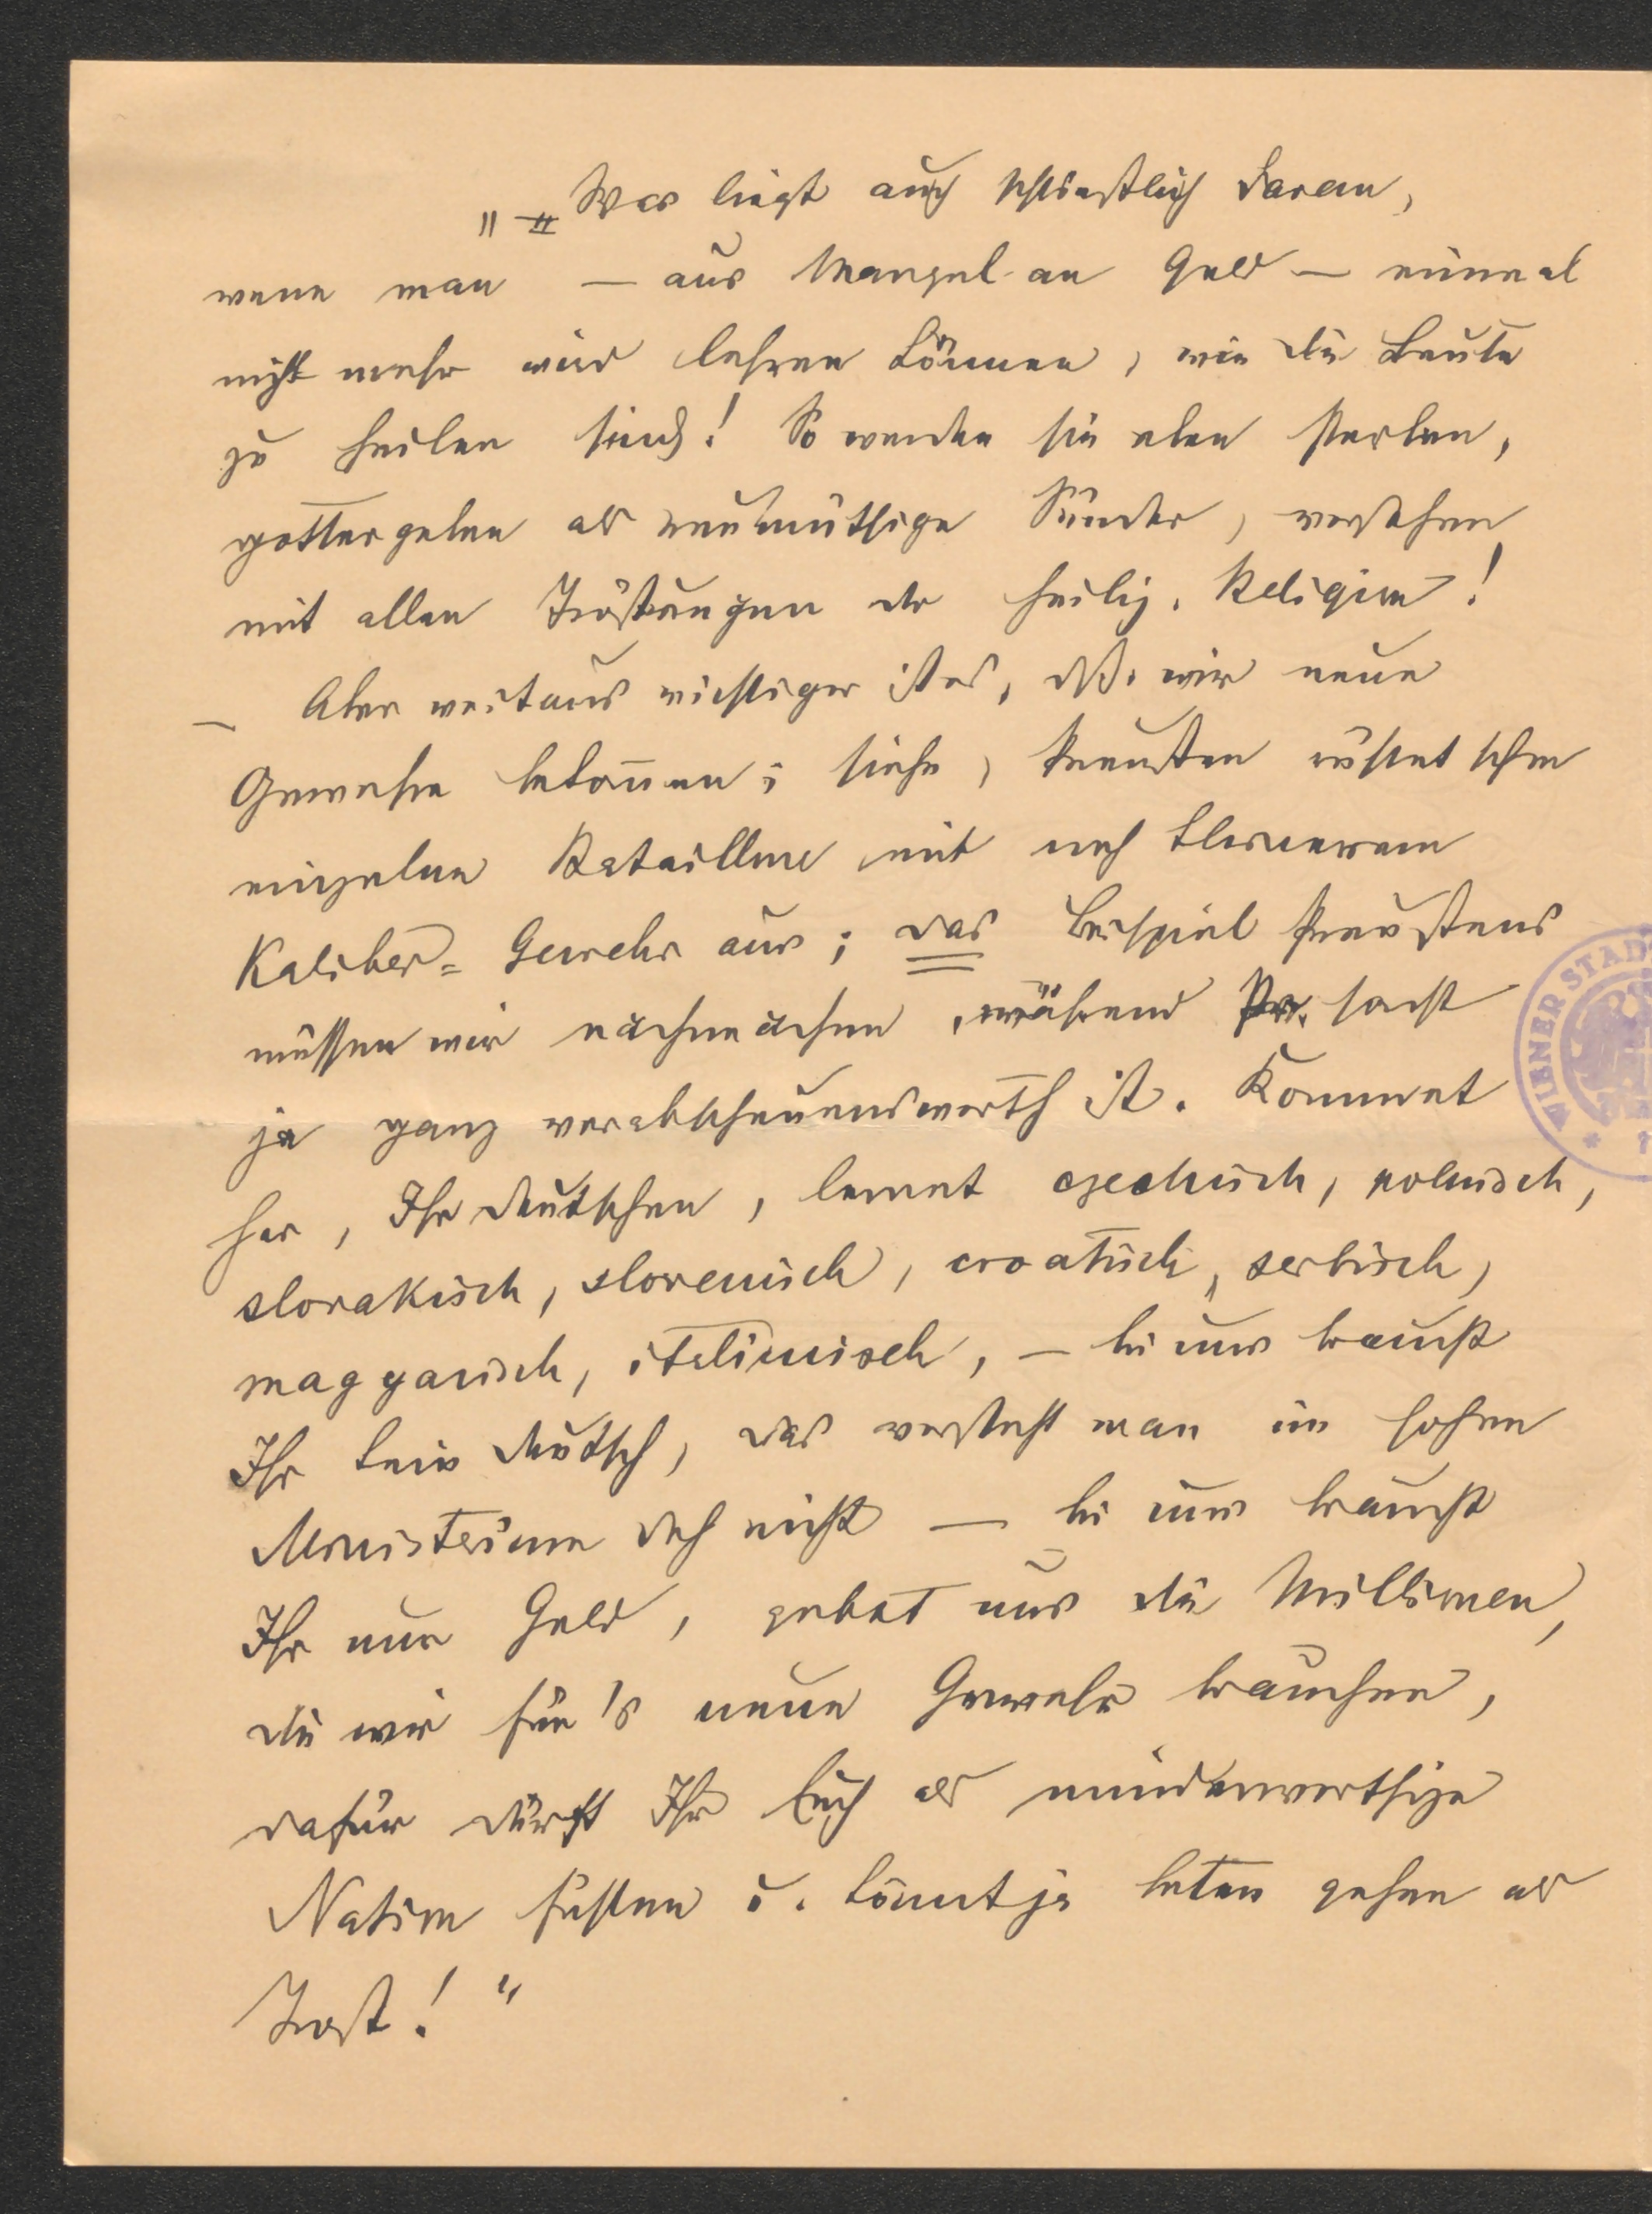 „ — Was liegt auch schließlich daran,
wenn man — aus Mangel an Geld — einmal
nicht mehr wird lehren können, wie die Leute
zu heilen sind! So werden sie eben sterben,
gottergeben als reumüthige Sünder, versehen
mit allen Tröstungen der heilig. Religion!
— Aber weitaus wichtiger ist es, dß. wir neue
Gewehre bekom̅en; siehe, Preußen rüstet schon
einzelne Bataillone mit noch kleinerem
Kaliber-Gewehr aus; das Beispiel Preußens
müssen wir nachmachen, während Pr. sonst
ja ganz verabscheuenswerth ist. Kommet
her, Ihr Deutschen, lernet czechisch, polnisch,
slovakisch, slovenisch, croatisch, serbisch,
magyarisch, italienisch, — bei uns braucht
Ihr kein Deutsch, das versteht man im hohen
Ministerium doch nicht — bei uns braucht
Ihr nur Geld, gebet uns die Millionen,
die wir für's neue Gewehr brauchen,
dafür dürft Ihr Euch als minderwerthige
Nation fühlen u. könnt ja beten gehen als
Trost!"
WIENER STAD